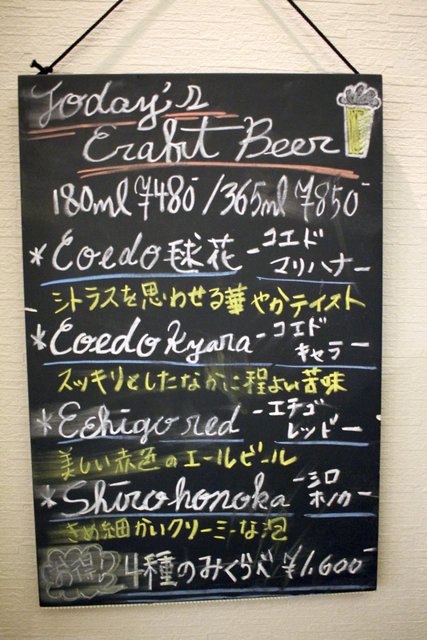 Today's
Crabut Beer
180ml ¥480- / 365ml ¥850-
*Coedo 毬花 -コエド マリハナー
シトラスを思わせる華やかテイスト
*Coedo Kyara -コエド キャラー
スッキリとしたなかに程よい苦味
*Echigo red -エチゴ レッドー
美しい赤色のエールビール
*Shirohonoka -シロ ホノカー
きめ細かいクリーミーな泡
お得! 4種のみくらべ ¥1,600-